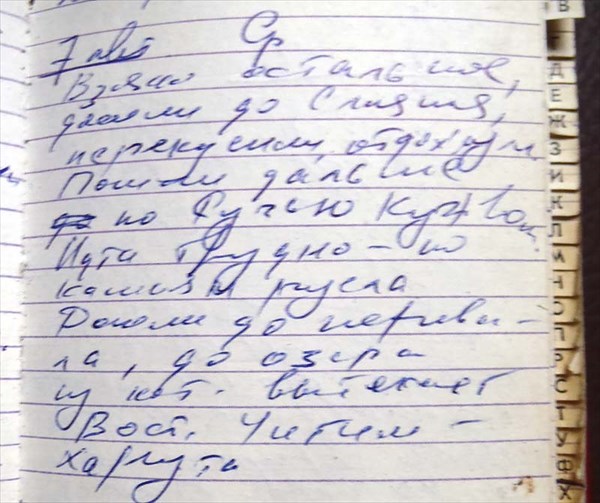 7 авг Ср
Взяли остальное,
дошли до Слияния,
перекусили, отдохнули
Пошли дальше
по Ручью
Идти трудно – по
камням русла
Дошли до перева-
ла, до озера
из кот. вытекает
Вост. Читим-
харута
В
Д
Е
Ж
З
И
К
Л
И
Н
О
П
Р
С
Т
У
Ф
Х